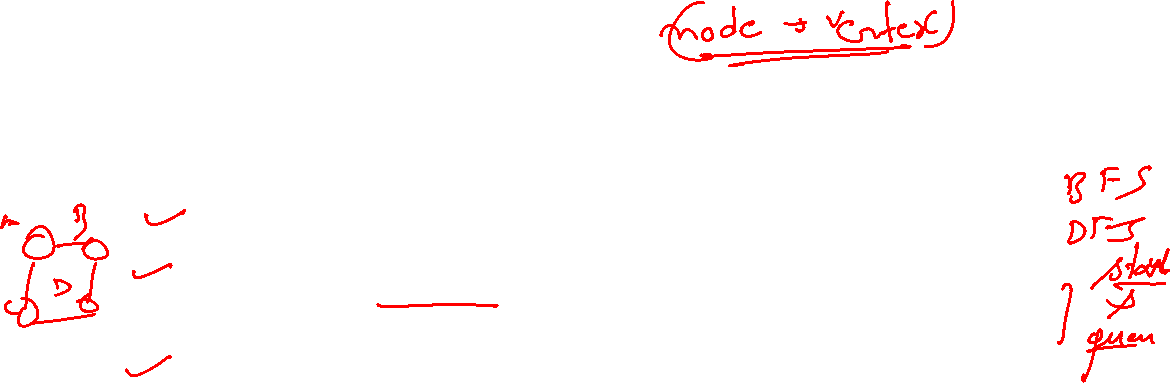 node → vertex
A B
C D
BFS
DFS
stack
queue